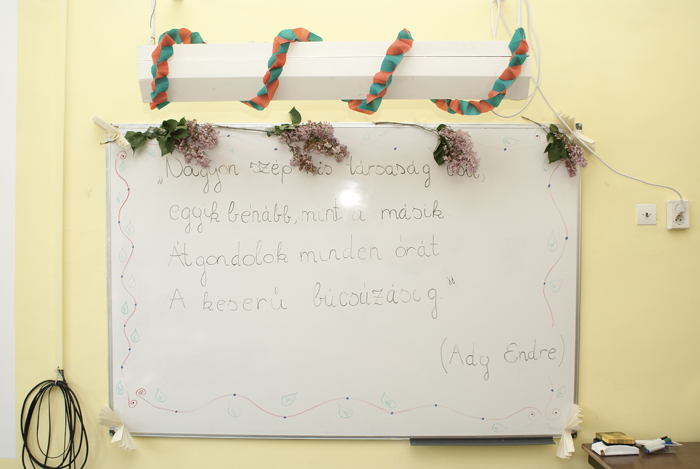 „Nagyon szép kis társaság volt,
egyik bénább, mint a másik
Átgondolok minden órát
A keserű búcsúzásig."
(Ady Endre)